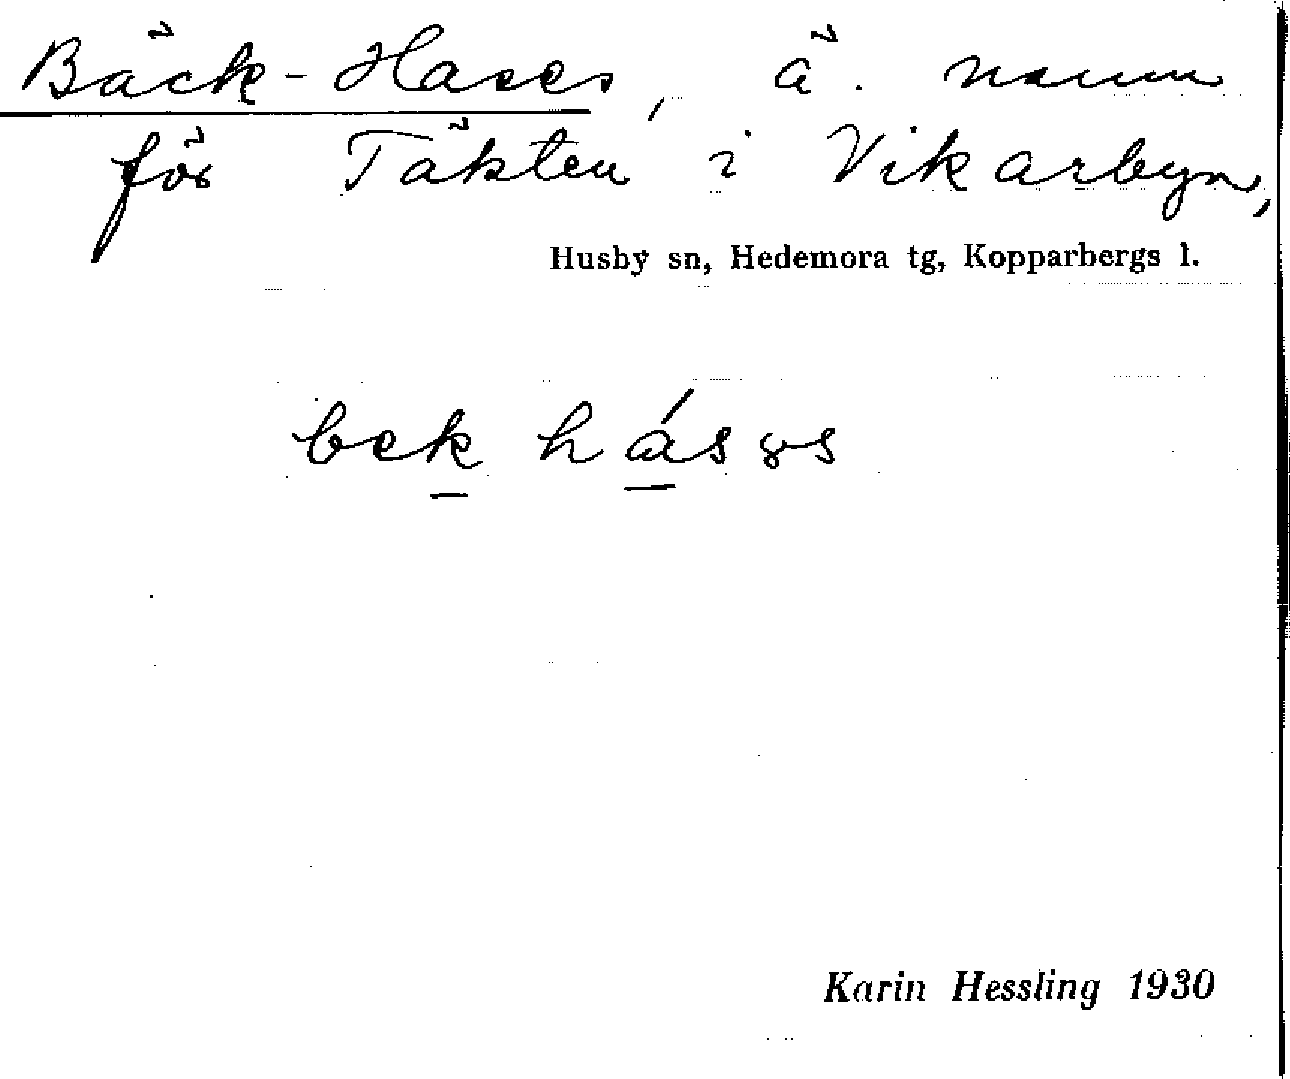 Bäck-Hases, ä. namn
för Täkten i Vikarbyn,
Husby sn, Hedemora tg, Kopparbergs l.
bek hásɤs
Karin Hessling 1930